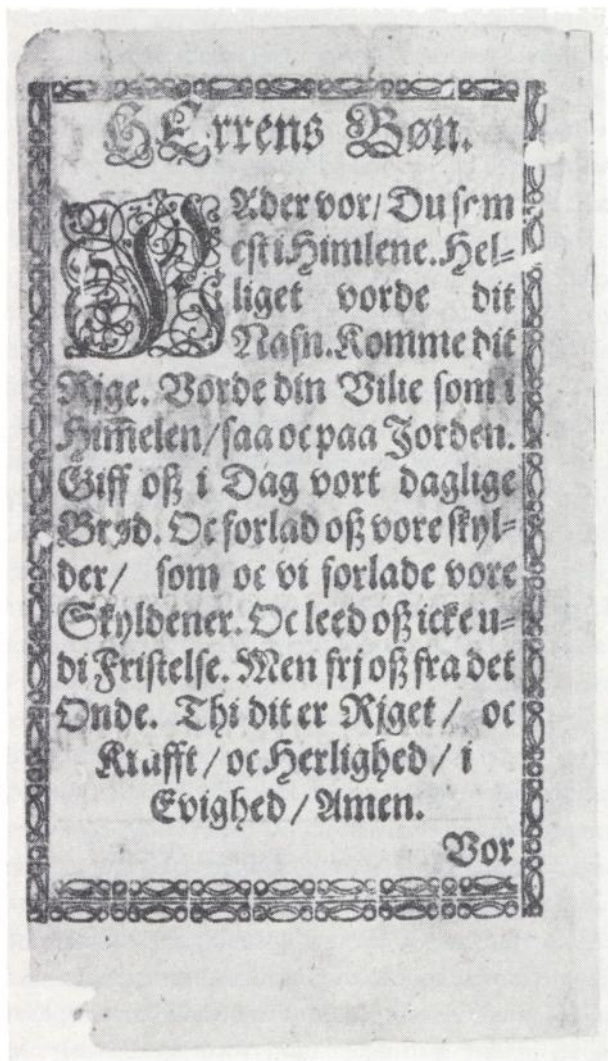 HErrens Bøn.
FAder vor/ Du som
est i Himlene. Hel=
liget vorde dit
Nafn. Komme dit
Rjge. Vorde din Vilie som i
Him̅elen/ saa oc paa Jorden.
Giff oß i Dag vort daglige
Brød. Oc forlad oß vore skyl=
der/ som oc vi forlade vore
Skyldener. Oc leed oß icke u=
di Fristelse. Men frj oß fra det
Onde. Thi dit er Rjget/ oc
Krafft/ oc Herlighed/ i
Evighed/ Amen.
Vor